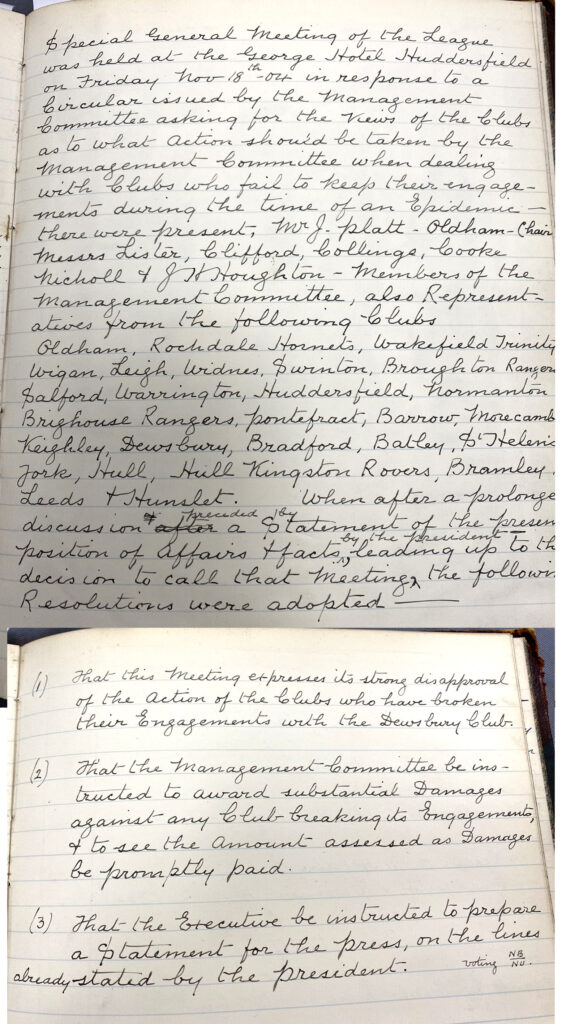 Special General Meeting of the League
was held at the George Hotel Huddersfield
on Friday Nov 18th-04 in response to a
Circular issued by the Management
Committee asking for the Views of the Clubs
as to what Action should be taken by the
Management Committee when dealing
with Clubs who fail to keep their engage-
ments during the time of an Epidemic -
there were present, Mr J. Platt - Oldham - Chair
Messrs Lister, Clifford, Collings, Cooke
Nicholl & J H Houghton - Members of the
Management Committee, also Represent-
atives from the following Clubs
Oldham, Rochdale Hornets, Wakefield Trinity
Wigan, Leigh, Widnes, Swinton, Broughton Rangers
Salford, Warrington, Huddersfield, Normanton
Brighouse Rangers, Pontefract, Barrow, Morecamb
Keighley, Dewsbury, Bradford, Batley, St Helens
York, Hull, Hull Kingston Rovers, Bramley.
Leeds & Hunslet. When after a prolonge
& preceded by
discussion after a Statement of the presen
by the president
position of Affairs & facts, leading up to th
decision to call that Meeting, the followin
Resolutions were adopted —
(1) That this Meeting expresses its strong disapproval
of the Action of the Clubs who have broken
their Engagements with the Dewsbury Club.
(2) That the Management Committee be ins-
tructed to award substantial Damages
against any Club breaking its Engagements,
& to see the Amount assessed as Damages
be promptly paid.
(3) That the Executive be instructed to prepare
a Statement for the press, on the lines
already stated by the president.
voting